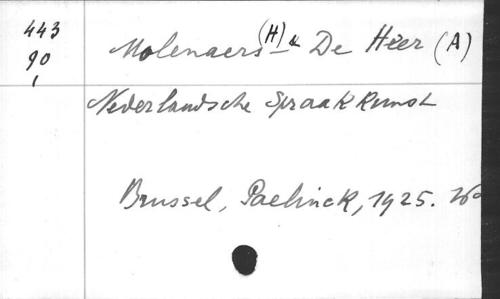 443
90
Molenaers (H) & De Heer (A)
Nederlandsche Spraakkunst
Brussel, Paelinck, 1925.